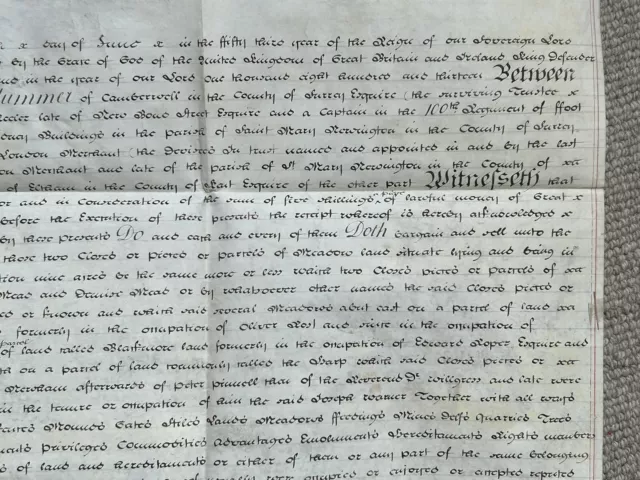 x day of June x in the fifty third year of the Reign of our Sovereign Lord
by the Grace of God of the United Kingdom of Great Britain and Ireland King Defender
and in the year of our Lord one thousand eight hundred and thirteen Between
of Camberwell in the County of Surrey Esquire (the surviving Trustee x
late of New Bond Street Esquire and a Captain in the 100th Regiment of ffoot
Buildings in the parish of Saint Mary Newington in the County of Surrey
London Merchant (the Devisees In trust named and appointed in and by the last
Merchant and late of the parish of St Mary Newington in the County of
of Eltham in the County of Kent Esquire of the other part Witnesseth that
for and in Consideration of the sum of five shillings apiece of lawful money of Great x
Before the Execution of these presents the receipt whereof is hereby acknowledged x
by these presents Do and each and every of them Doth bargain and sell unto the
those two Closes or pieces or parcels of Meadow land situate lying and being in
nine acres be the same more or less which two Closes pieces or parcels of
Mead and Mead or by whatsoever other names the said Closes pieces or
or known and which said several Meadows abut east on a parcel of land
formerly in the occupation of Oliver and since in the occupation of
parcel of land called land formerly in the occupation of Edward Roper Esquire and
on a parcel of land commonly called the Sharp which said Closes pieces or
afterwards of Peter then of the Reverend Dr and late were
in the tenure or occupation of him the said Joseph Warner Together with all ways
Mounds Gates Stiles Lands Meadows ffeedings Mines Delfs Quarries Trees
Privileges Commodities Advantages Emoluments Hereditaments Rights members
of land and Hereditaments or either of them or any part of the same belonging
were occupied or enjoyed or accepted reputed